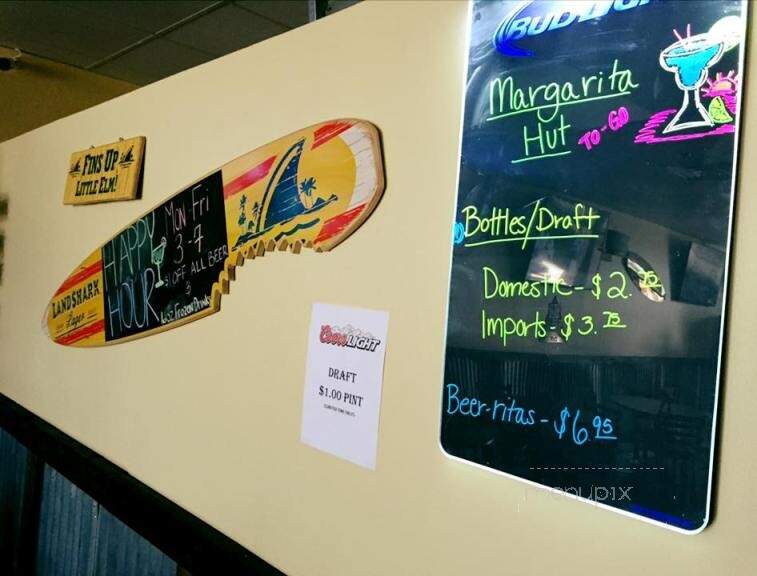 FINS UP
LITTLE ELM!
LANDSHARK
Lager
HAPPY
HOUR
MON-Fri
3-7
$1 OFF ALL BEER
Frozen Drinks
Coors LIGHT
DRAFT
$1.00 PINT
BUD LIGHT
Margarita
Hut
TO-GO
Bottles/Draft
Domestic - $2.75
Imports - $3.75
Beer-ritas - $6.95
menupix